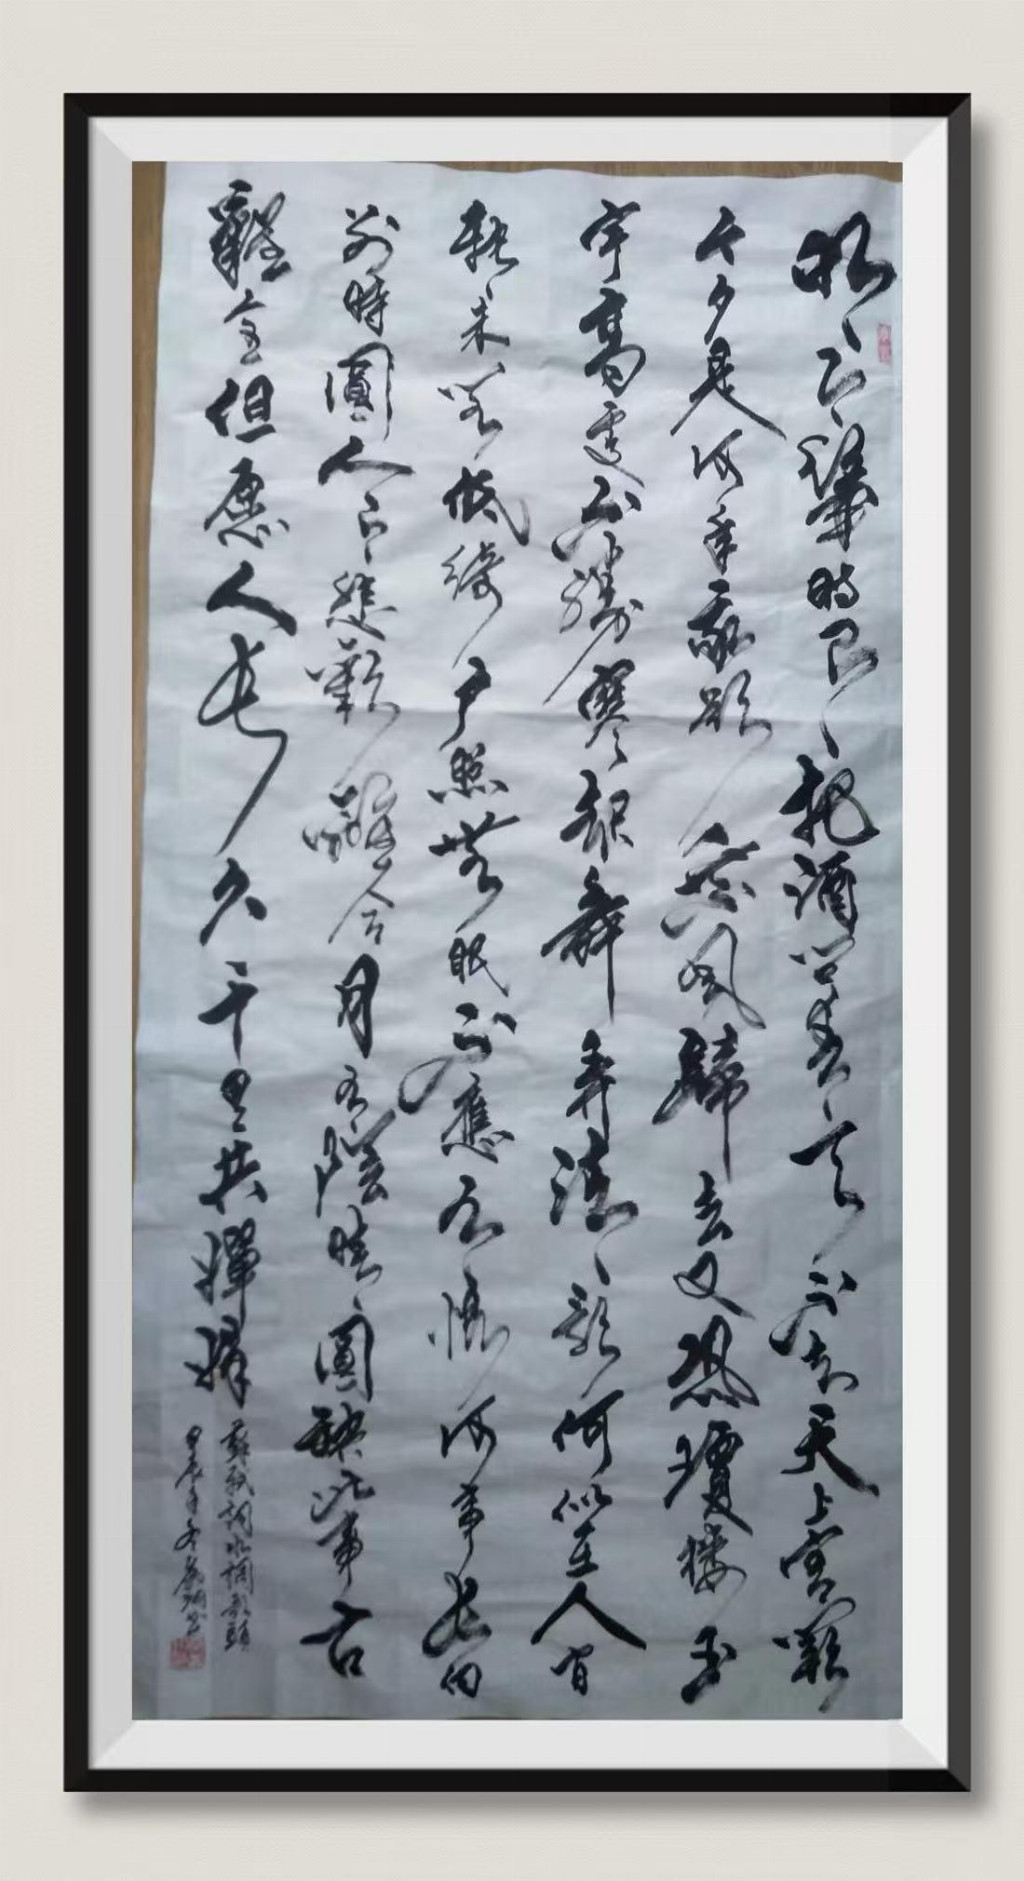 明月幾時有把酒問青天不知天上宮闕
今夕是何年我欲乘風歸去又恐瓊楼玉
宇高處不勝寒起舞弄清影何似在人間
轉朱閣低綺戶照無眠不應有恨何事長向
別時圓人有悲歡離合月有陰晴圓缺此事古
難全但愿人長久千里共嬋娟
蘇軾詞水調歌頭
甲辰年冬書